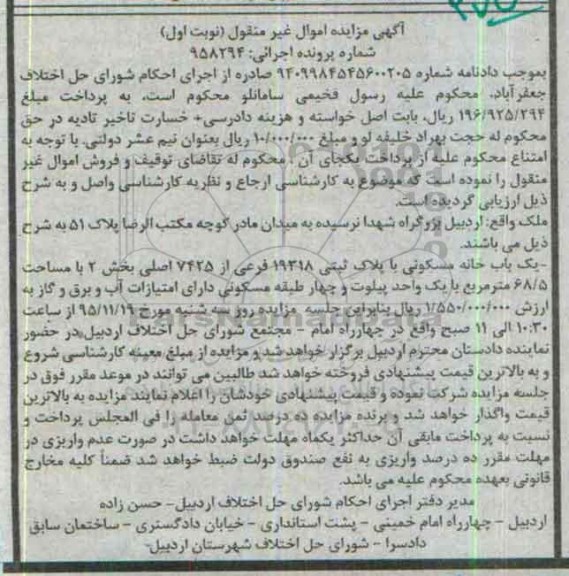 آگهی مزایده اموال غیر منقول (نوبت اول)
شماره پرونده اجرائی: ۹۵۸۲۹۴
بموجب دادنامه شماره ۹۴۰۹۹۸۴۵۴۵۶۰۰۲۰۵ صادره از اجرای احکام شورای حل اختلاف
جعفرآباد، محکوم علیه رسول فخیمی سامانلو محکوم است، به پرداخت مبلغ
۱۹۶/۹۲۵/۲۹۴ ریال، بابت اصل خواسته و هزینه دادرسی+ خسارت تاخیر تادیه در حق
محکوم له حجت بهراد خلیفه لو و مبلغ ۱۰/۰۰۰/۰۰۰ ریال بعنوان نیم عشر دولتی. با توجه به
امتناع محکوم علیه از پرداخت یکجای آن، محکوم له تقاضای توقیف و فروش اموال غیر
منقول را نموده است که موضوع به کارشناسی ارجاع و نظریه کارشناسی واصل و به شرح
ذیل ارزیابی گردیده است.
ملک واقع: اردبیل بزرگراه شهدا نرسیده به میدان مادر کوچه مکتب الرضا پلاک ۵۱ به شرح
ذیل می باشند.
-یک باب خانه مسکونی با پلاک ثبتی ۱۹۳۱۸ فرعی از ۷۴۲۵ اصلی بخش ۲ با مساحت
۶۸/۵ مترمربع با یک واحد پیلوت و چهار طبقه مسکونی دارای امتیازات آب و برق و گاز به
ارزش ۱/۵۵۰/۰۰۰/۰۰۰ ریال بنابراین جلسه مزایده روز سه شنبه مورخ ۹۵/۱۱/۱۹ از ساعت
۱۰:۳۰ الی ۱۱ صبح واقع در چهارراه امام - مجتمع شورای حل اختلاف اردبیل در حضور
نماینده دادستان محترم اردبیل برگزار خواهد شد و مزایده از مبلغ معینه کارشناسی شروع
و به بالاترین قیمت پیشنهادی فروخته خواهد شد طالبین می توانند در موعد مقرر فوق در
جلسه مزایده شرکت نموده و قیمت پیشنهادی خودشان را اعلام نمایند مزایده به بالاترین
قیمت واگذار خواهد شد و برنده مزایده ده درصد ثمن معامله را فی المجلس پرداخت و
نسبت به پرداخت مابقی آن حداکثر یکماه مهلت خواهد داشت در صورت عدم واریزی در
مهلت مقرر ده درصد واریزی به نفع صندوق دولت ضبط خواهد شد ضمناً کلیه مخارج
قانونی بعهده محکوم علیه می باشد.
مدیر دفتر اجرای احکام شورای حل اختلاف اردبیل- حسن زاده
اردبیل - چهارراه امام خمینی - پشت استانداری - خیابان دادگستری - ساختمان سابق
دادسرا - شورای حل اختلاف شهرستان اردبیل-